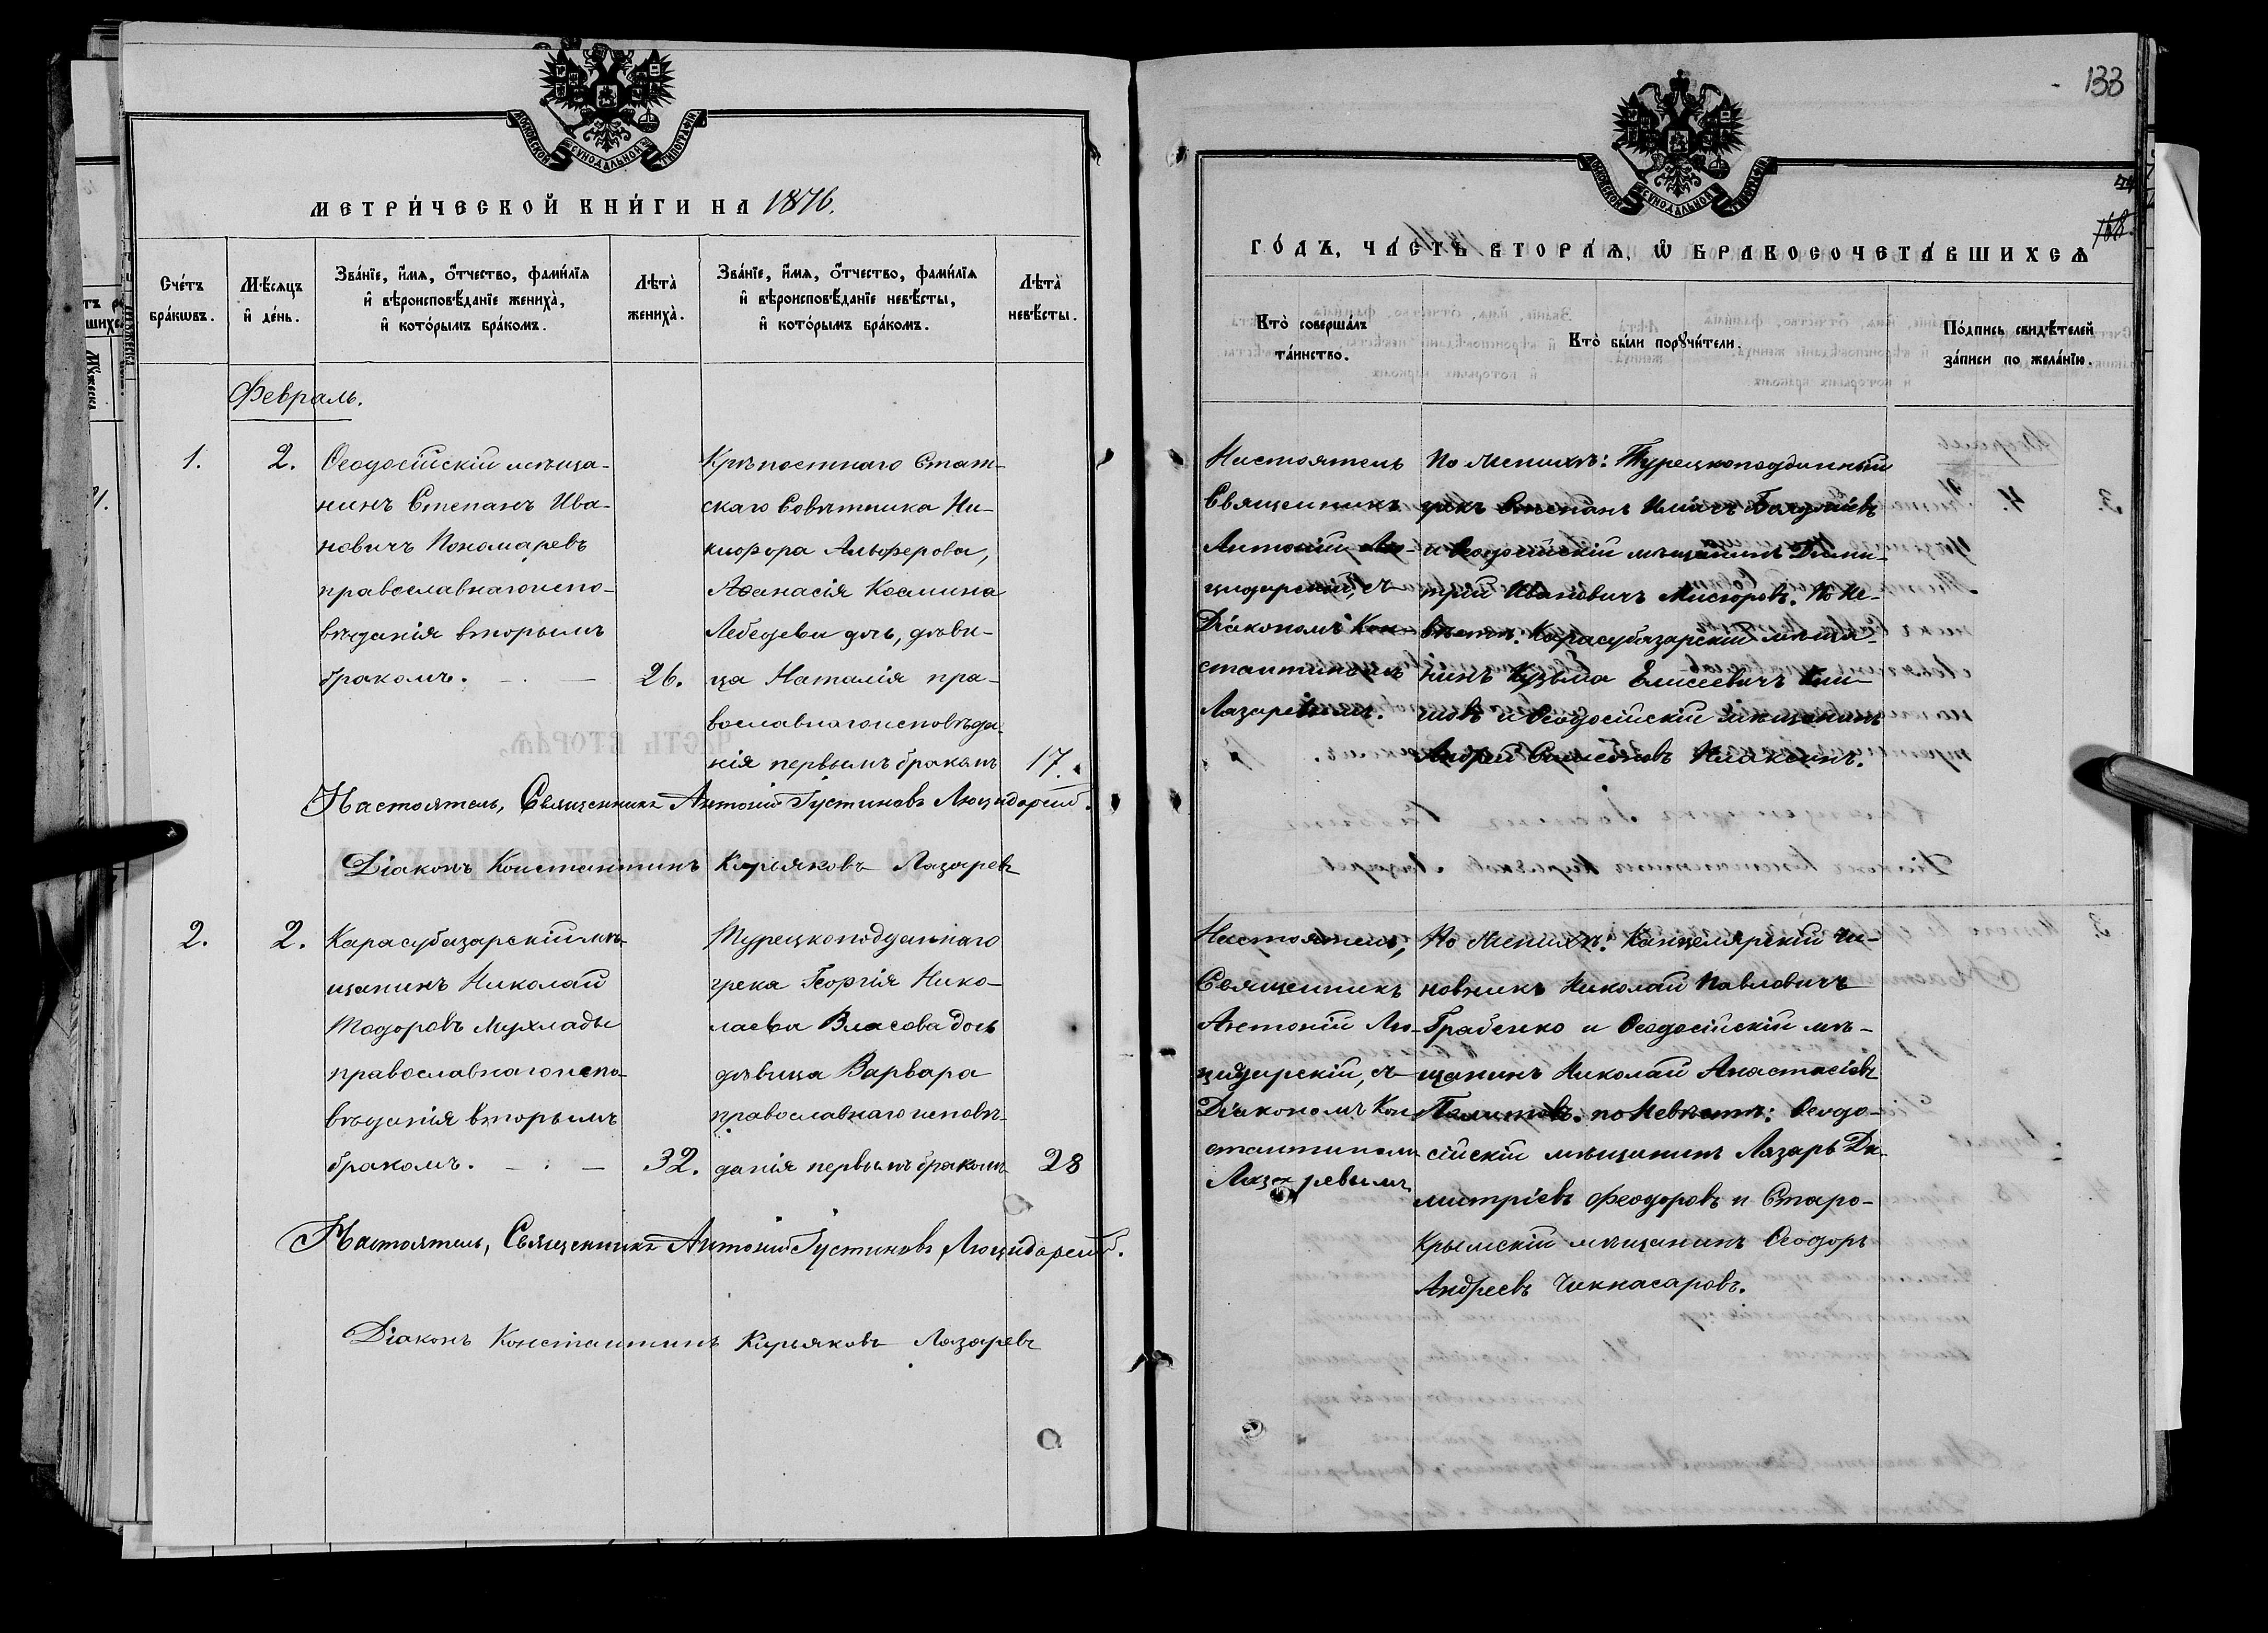 МОСКОВСКОЙ СѴНОДАЛЬНОЙ ТИПОГРАФІИ
МЕТРИ́ЧЕСКОЙ КНИ́ГИ НА 1876.
Сче́тъ бра́кѡвъ.
Мѣ́сяцъ и҆ де́нь.
Зва́нїе, и҆́мѧ, ѻ҆́тчество, фами́лїѧ и҆ вѣроисповѣ́данїе жениха̀, и҆ кото́рымъ бра́комъ.
Лѣ́та̀ жениха̀.
Зва́нїе, и҆́мѧ, ѻ҆́тчество, фами́лїѧ и҆ вѣроисповѣ́данїе невѣ́сты, и҆ кото́рымъ бра́комъ.
Лѣ́та̀ невѣ́сты.
Февраль.
1.
2.
Ѳеодосійскій мѣща-
нинъ Степанъ Ива-
новичъ Пономаревъ
православнаго испо-
вѣданія вторымъ
бракомъ.
26.
Крѣпостнаго Стат-
скаго Совѣтника Ни-
кифора Альферова,
Аѳанасія Космина
Лебедева дочь, дѣви-
ца Наталія пра-
вославнаго исповѣда-
нія первымъ бракомъ
17.
Настоятель, Священникъ Антоній Іустиновъ Люцидарскій.
Діаконъ Константинъ Кирьяковъ Лазаревъ
2.
2.
Карасубазарскій мѣ-
щанинъ Николай
Тодоровъ Мухлады
православнаго испо-
вѣданія вторымъ
бракомъ.
32.
Турецкоподданнаго
грека Георгія Нико-
лаева Власова дочь
дѣвица Варвара
православнаго исповѣ-
данія первымъ бракомъ
28
Настоятель, Священникъ Антоній Іустиновъ Люцидарскій.
Діаконъ Константинъ Кирьяковъ Лазаревъ
133
МОСКОВСКОЙ СѴНОДАЛЬНОЙ ТИПОГРАФІИ
168.
ГО́ДЪ, ЧА́СТЬ ВТОРА́Ѧ, Ѿ БРАКОСОЧЕТА́ВШИХСѦ
Кто̀ соверша́лъ та́инство.
Кто̀ бы́ли порꙋчи́тели.
По́дпись свидѣ́телей за́писи по жела́нїю.
Настоятель
Священникъ
Антоній Лю-
цидарскій, съ
Діакономъ Кон-
стантиномъ
Лазаревымъ.
По женихѣ: Турецкоподданный
грекъ Степанъ
и Ѳеодосійскій мѣщанинъ Дими-
трій Ивановичъ Мисюровъ. По не-
вѣстѣ: Карасубазарскій мѣща-
нинъ Кузьма Елисеевичъ
и Ѳеодосійскій мѣщанинъ
Андрей Симеоновъ Плаксинъ.
Настоятель,
Священникъ
Антоній Лю-
цидарскій, съ
Діакономъ Кон-
стантиномъ
Лазаревымъ
По женихѣ: Канцелярскій чи-
новникъ Николай Павловичъ
Грабенко и Ѳеодосійскій мѣ-
щанинъ Николай Анастасіевъ
по Невѣстѣ: Ѳеодо-
сійскій мѣщанинъ Лазарь Ди-
митріевъ Феодоровъ и Старо-
Крымскій мѣщанинъ Ѳеодоръ
Андреевъ Чикнасаровъ.